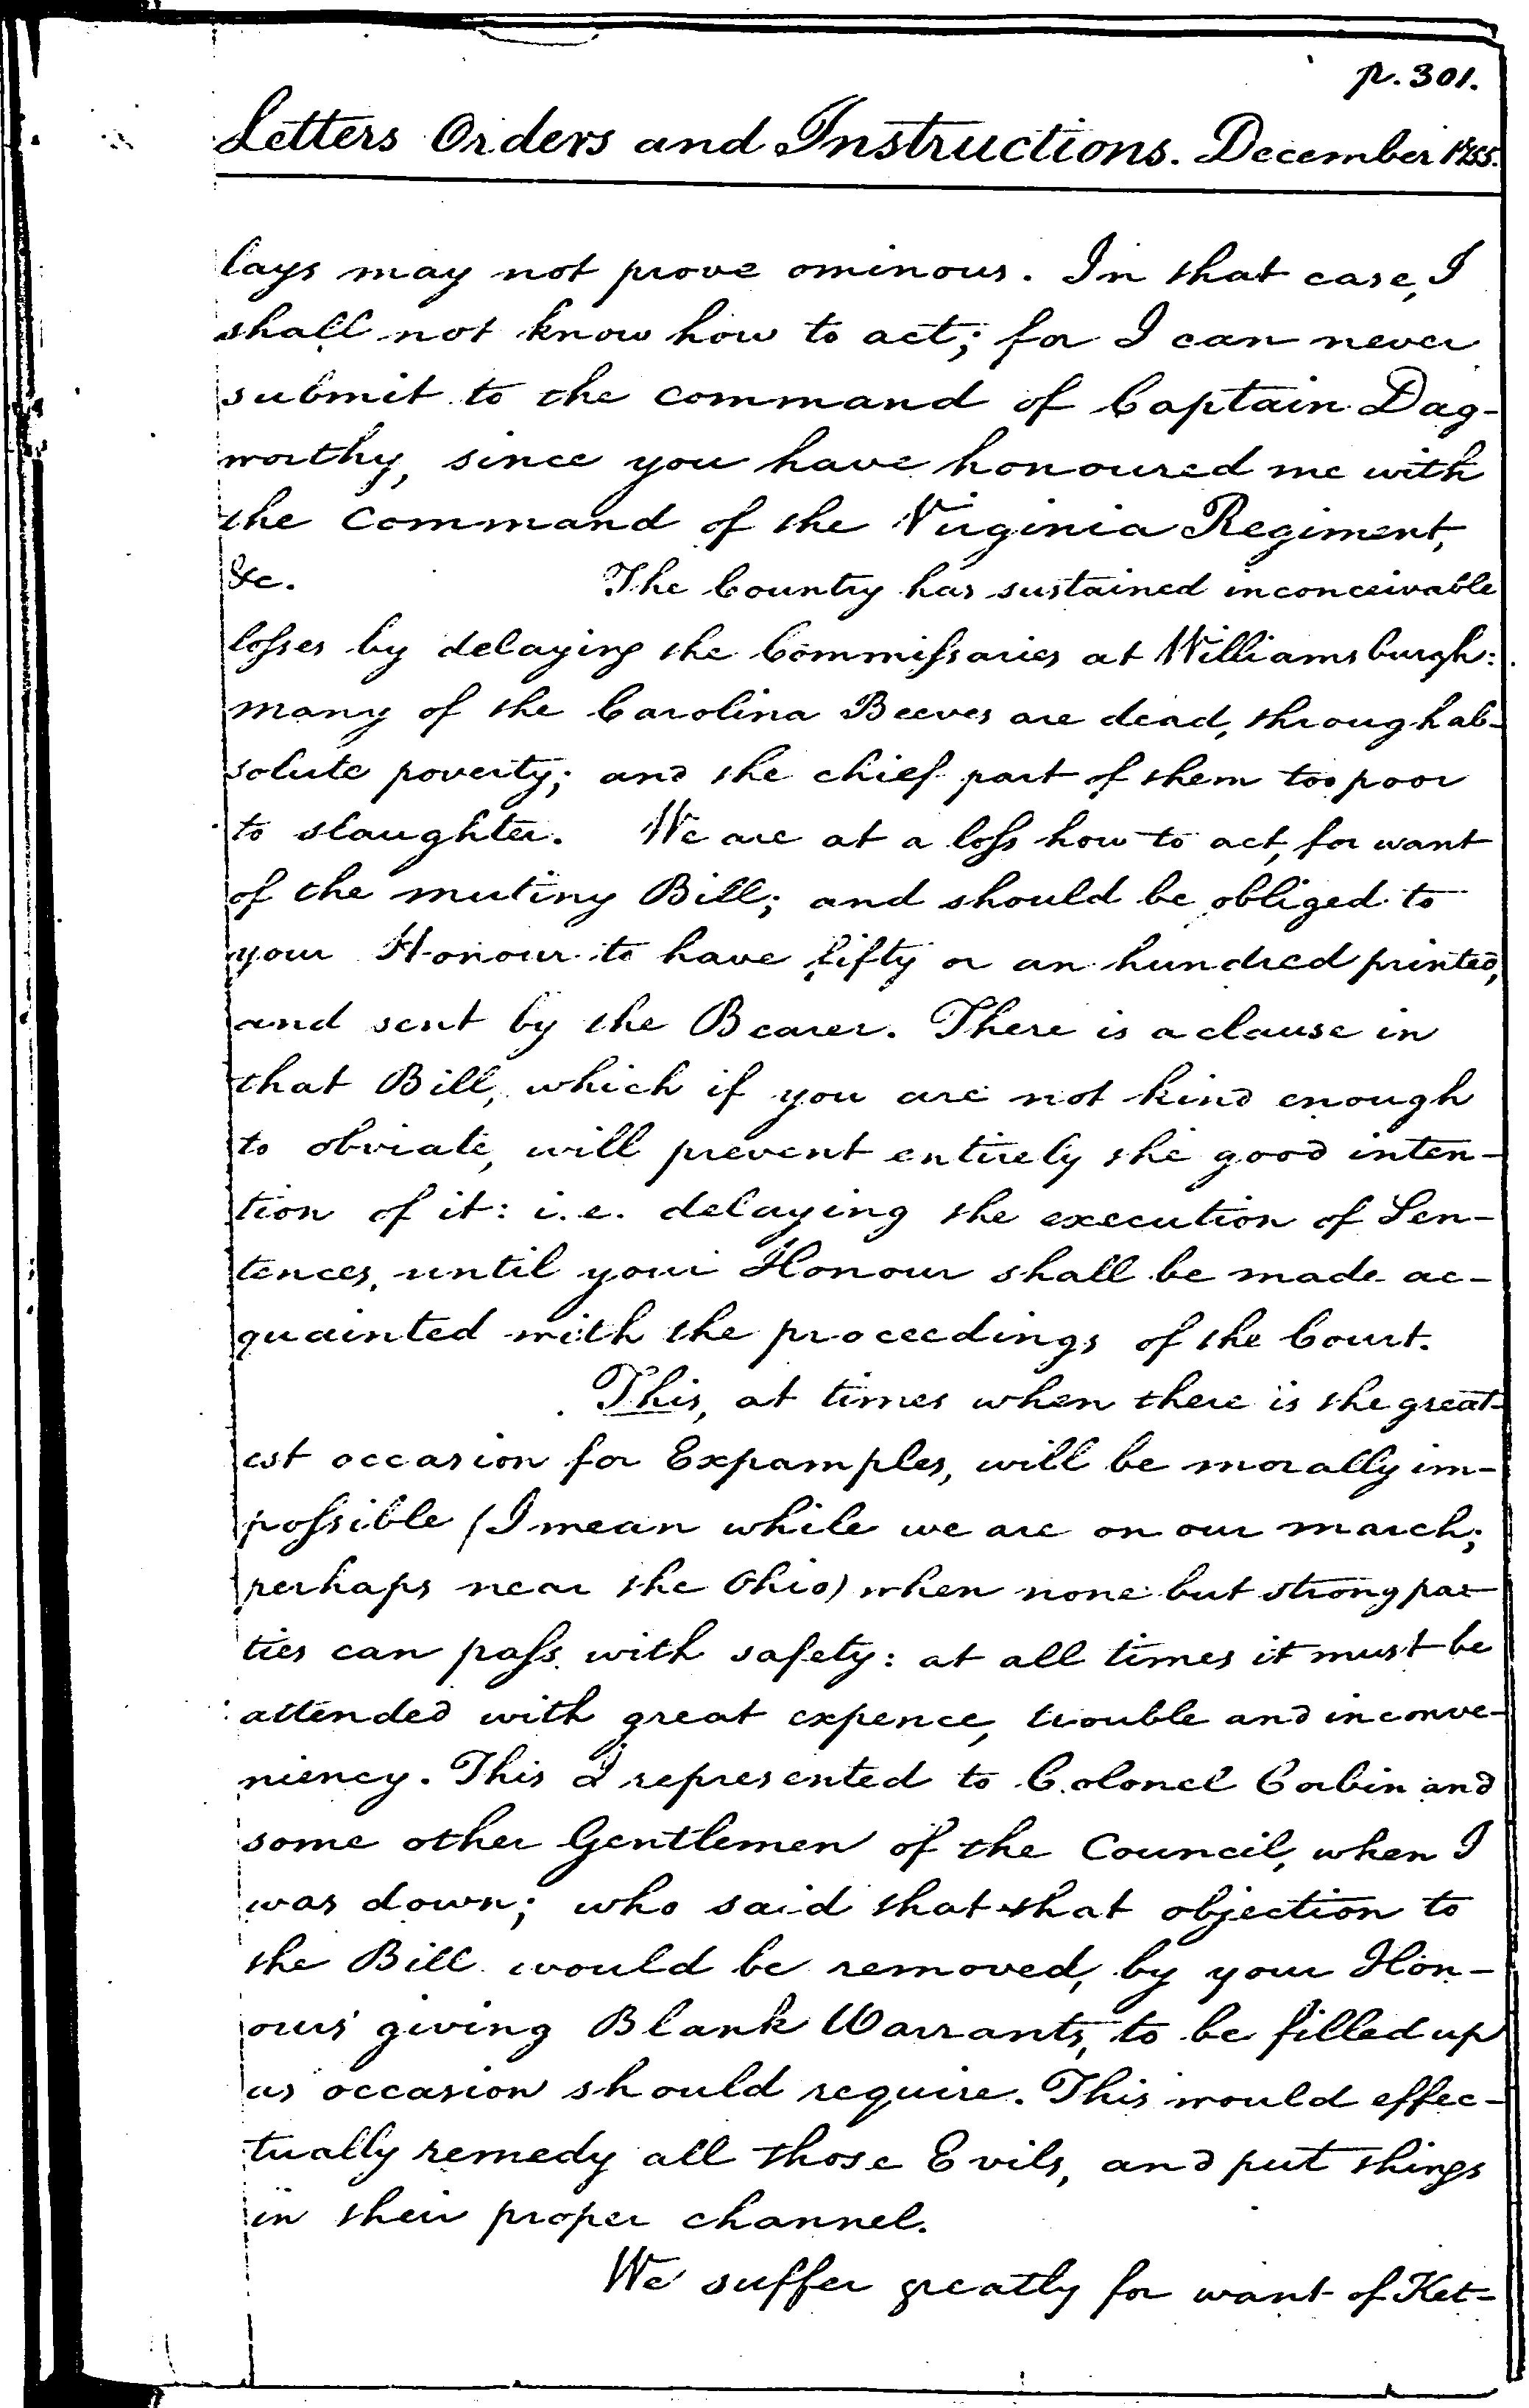 p. 301.
Letters Orders and Instructions. December 1755.
lays may not prove ominous. In that case, I
shall not know how to act; for I can never
submit to the command of Captain Dag-
worthy, since you have honoured me with
the Command of the Virginia Regiment,
&c. The Country has sustained inconceivable
losses by delaying the Commissaries at Williamsburgh:
many of the Carolina Beeves are dead, through ab-
solute poverty; and the chief part of them too poor
to slaughter. We are at a loss how to act, for want
of the mutiny Bill; and should be obliged to
your Honour to have fifty or an hundred printed,
and sent by the Bearer. There is a clause in
that Bill, which if you are not kind enough
to obviate, will prevent entirely the good inten-
tion of it: i.e. delaying the execution of Sen-
tences, until your Honour shall be made ac-
quainted with the proceedings of the Court.
This, at times when there is the great-
est occasion for Expamples, will be morally im-
possible (I mean while we are on our march;
perhaps near the Ohio) when none but strong par-
ties can pass with safety: at all times it must be
attended with great expence, trouble and inconve-
niency. This I represented to Colonel Corbin and
some other Gentlemen of the Council, when I
was down; who said that that objection to
the Bill would be removed, by your Hon-
ours' giving Blank Warrants, to be filled up
as occasion should require. This would effec-
tually remedy all those Evils, and put things
in their proper channel.
We suffer greatly for want of Ket-